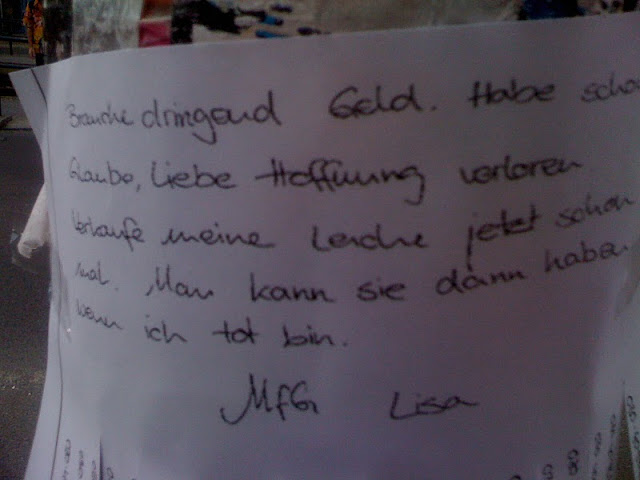 Brauche dringend Geld. Habe scho
Glaube, Liebe Hoffnung verloren
Verkaufe meine Leiche jetzt schon
mal. Man kann sie dann haben
wenn ich tot bin.
MfG Lisa